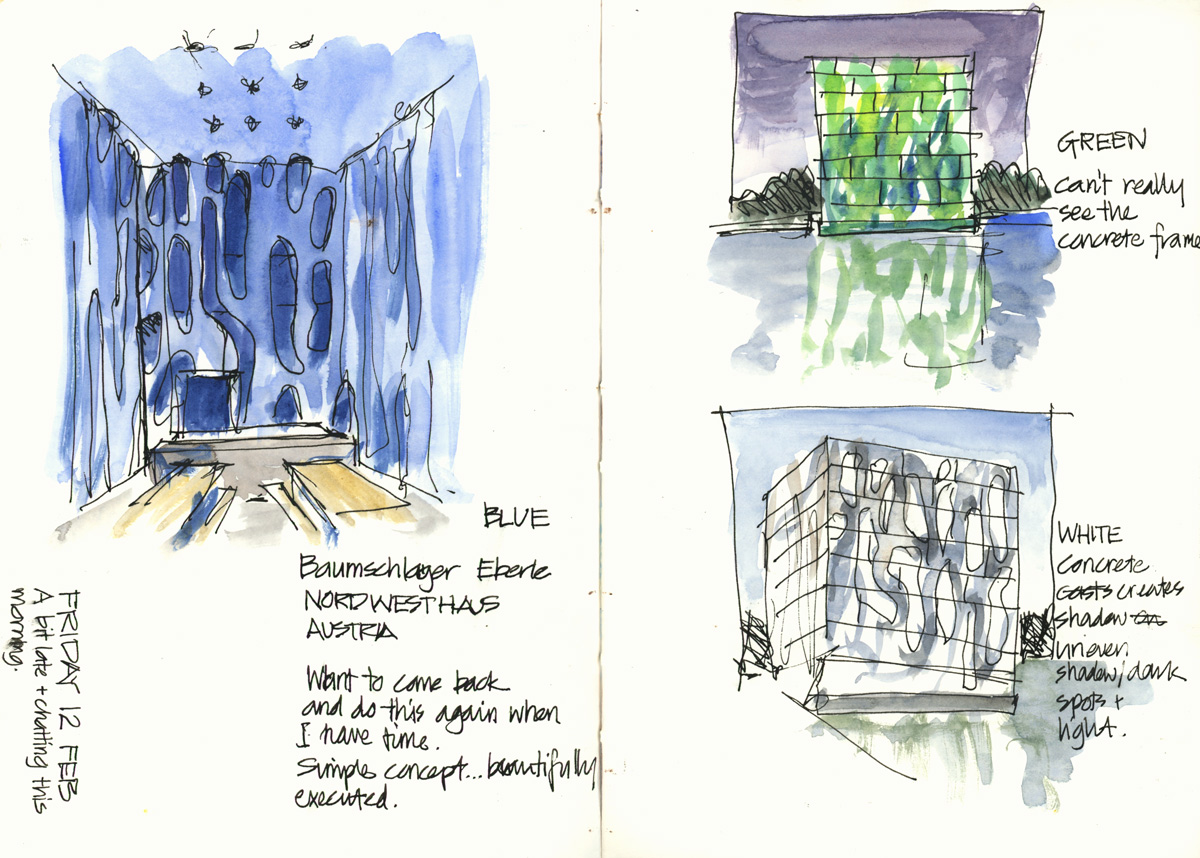 BLUE
Baumschlager Eberle
NORDWESTHAUS
AUSTRIA
Want to come back
and do this again when
I have time.
Simple concept... beautifully
executed.
FRIDAY 12 FEB
A bit late + chatting this
morning.
GREEN
can't really
see the
concrete frame
WHITE
Concrete
casts creates
shadow
uneven
shadow/dark
spots +
light.